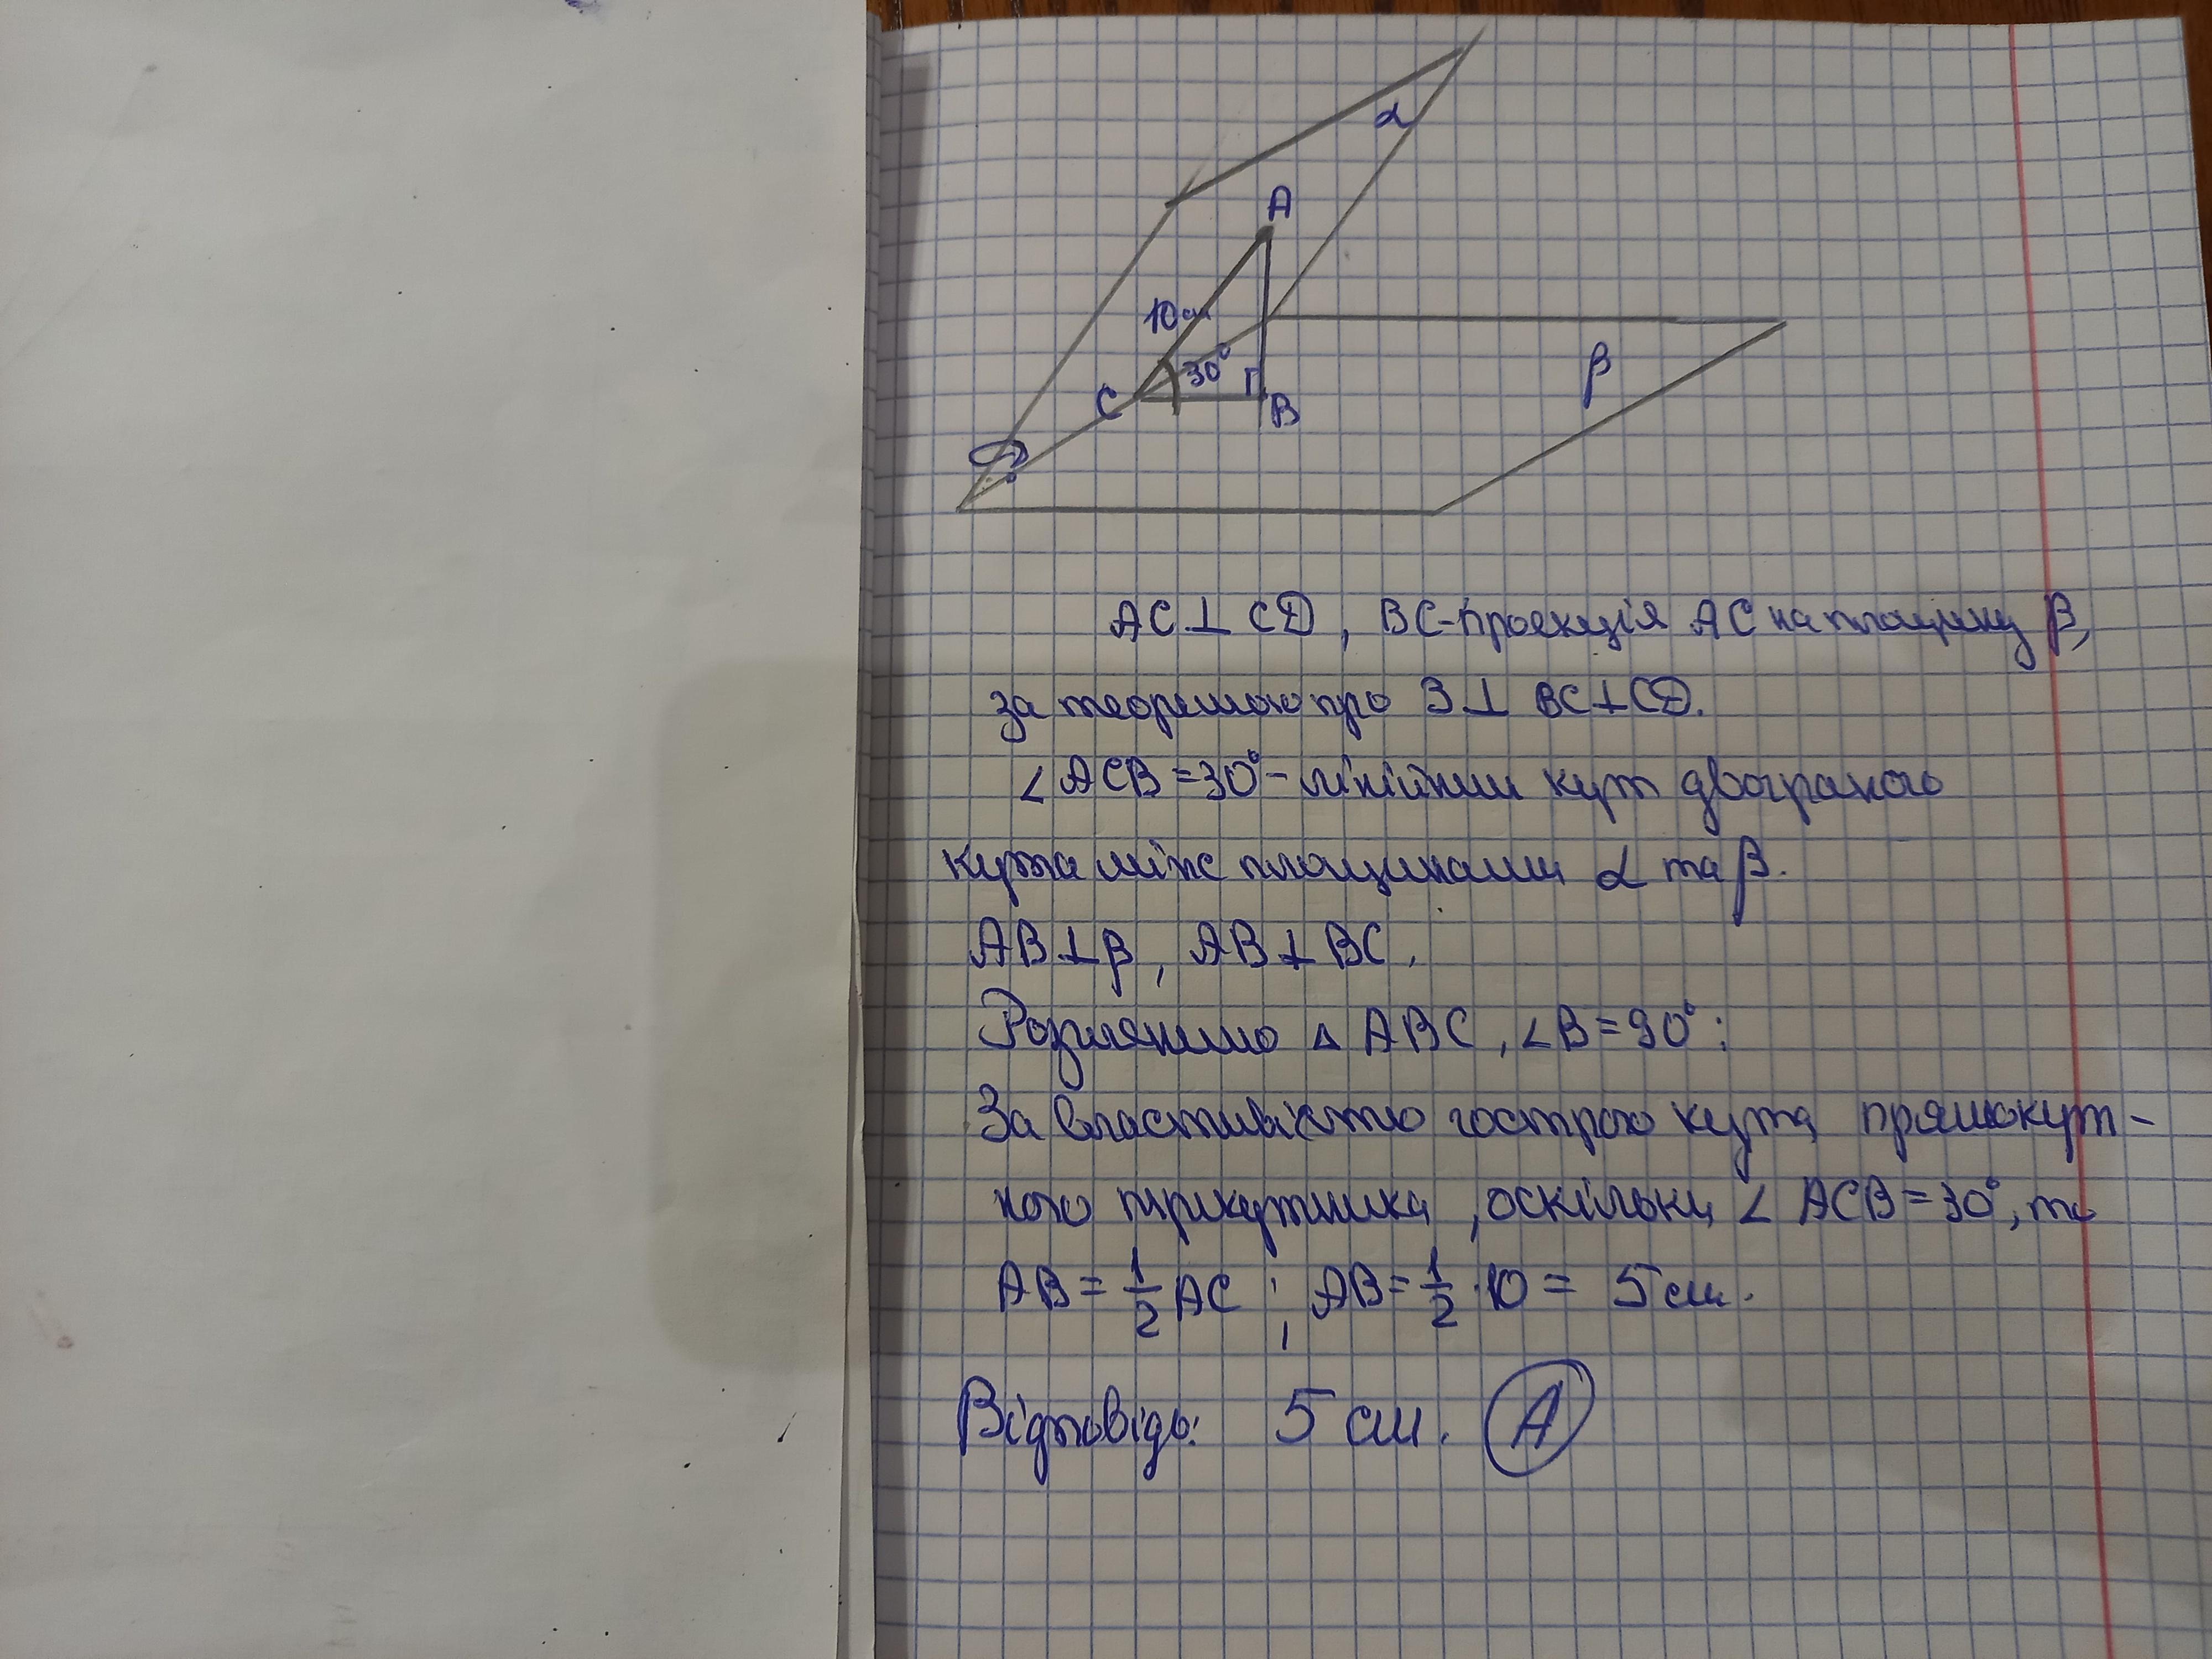 α
A
10см
30°
β
C
B
D
AC⊥CD, BC-проекція AC на площину β,
за теоремою про 3⊥ BC⊥CD.
∠ACB=30°- лінійний кут двогранного
кута між площинами α та β.
AB⊥β, AB⊥BC.
Розглянемо △ ABC, ∠B=90°:
За властивістю гострого кута прямокут-
ного трикутника, оскільки ∠ ACB=30°, то
AB=1/2 AC; AB=1/2·10= 5 см.
Відповідь: 5 см. A